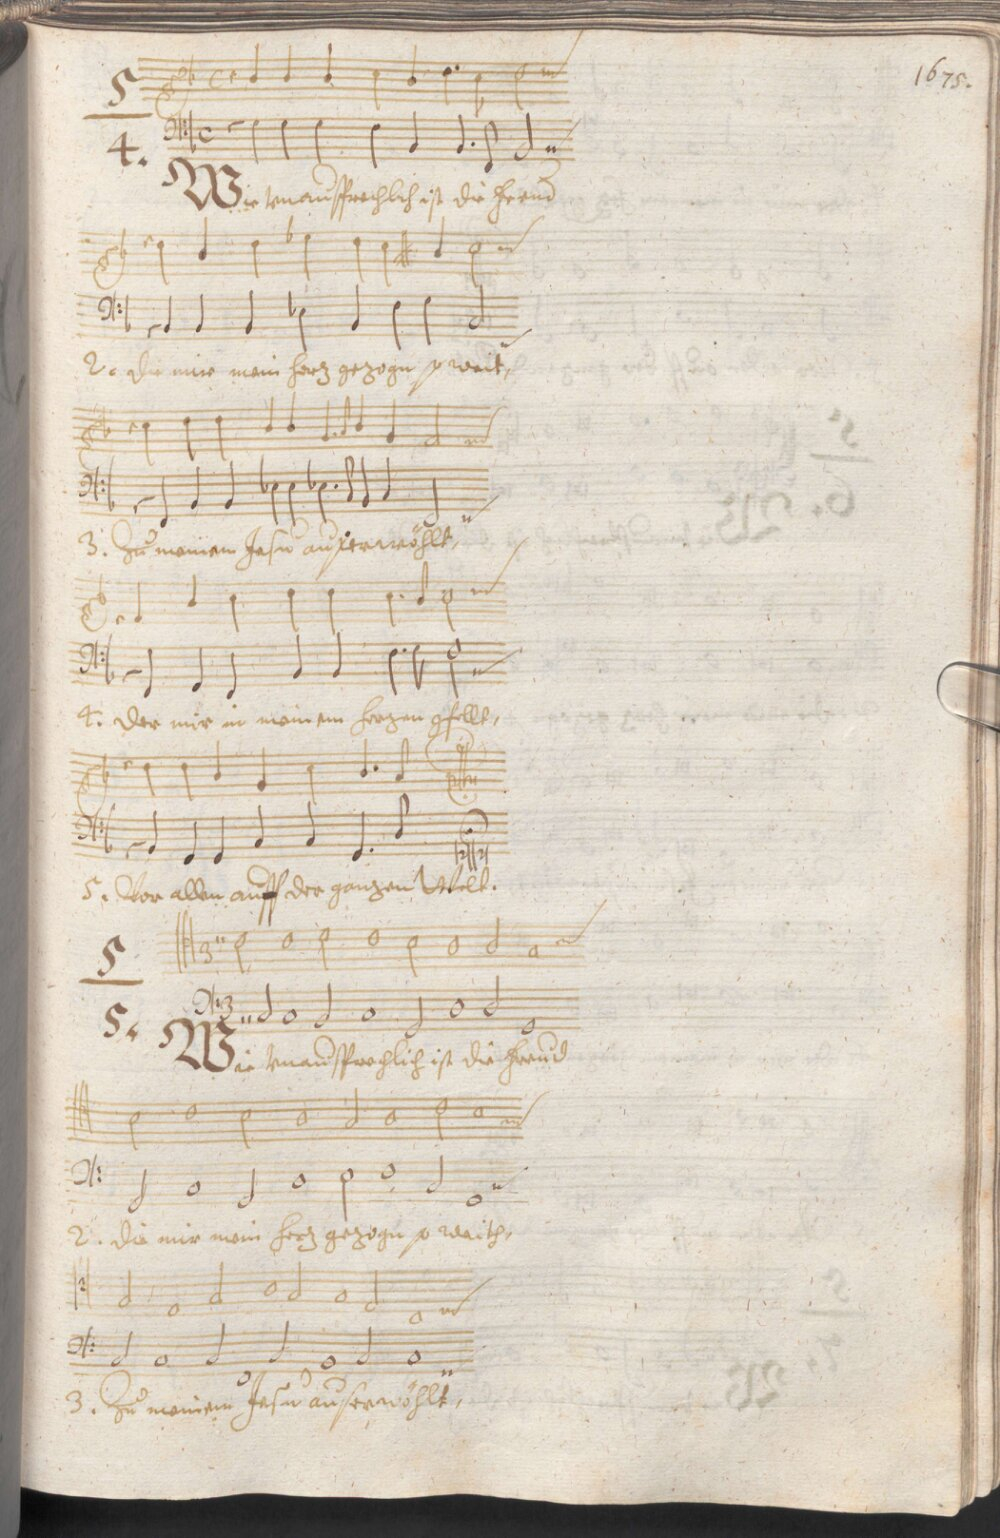 1675.
5
4.
Wie vnaussprechlich ist die freud
2. die mir mein herz gezogn so weit,
3. Zu meinem Jesu auserwöhlt,
4. Der mir in meinem herzen gfellt,
5. Vor allen auff der ganzen Welt.
5
5.
Wie vnaussprechlich ist die freud
2. die mir mein herz gezogn so weith,
3. Zu meinem Jesu auserwöhlt,